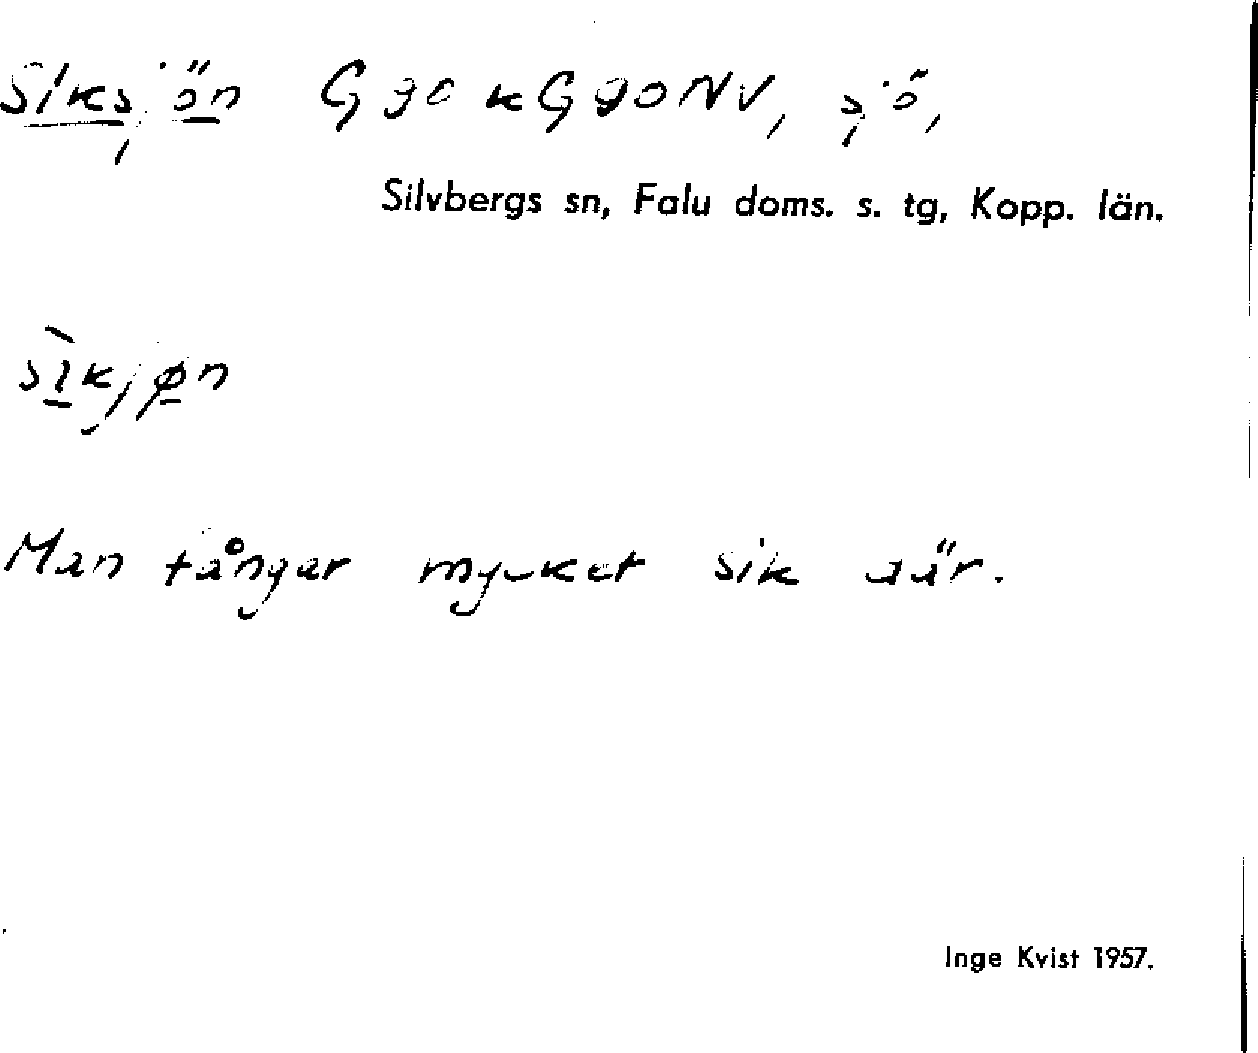 Siksjön G90 k G90NV, sjö,
Silvbergs sn, Falu doms. s. tg, Kopp. län.
sìkjøn
Man fångar mycket sik där.
Inge Kvist 1957.